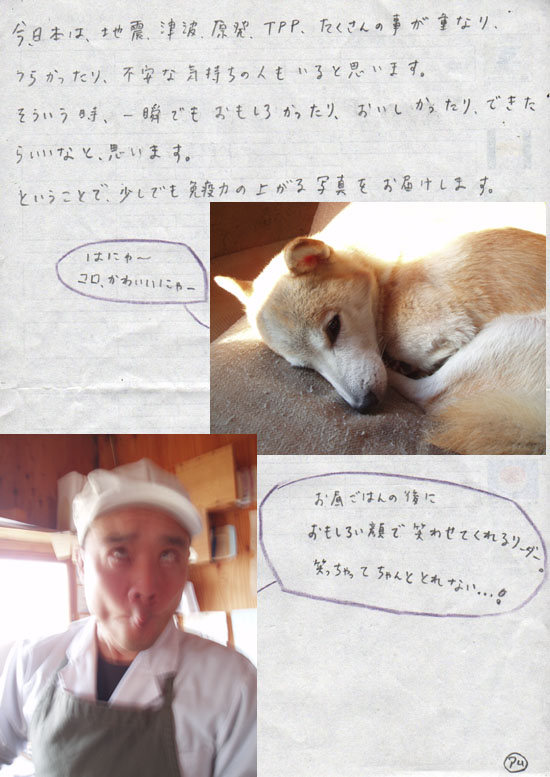 今、日本は、地震、津波、原発、TPP、たくさんの事が重なり、
つらかったり、不安な気持ちの人もいると思います。
そういう時、一瞬でもおもしろかったり、おいしかったり、できた
らいいなと、思います。
ということで、少しでも免疫力の上がる写真をお届けします。
はにゃ〜
コロ、かわいいにゃー
お昼ごはんの後に
おもしろい顔で笑わせてくれるリーダー。
笑っちゃってちゃんととれない…!